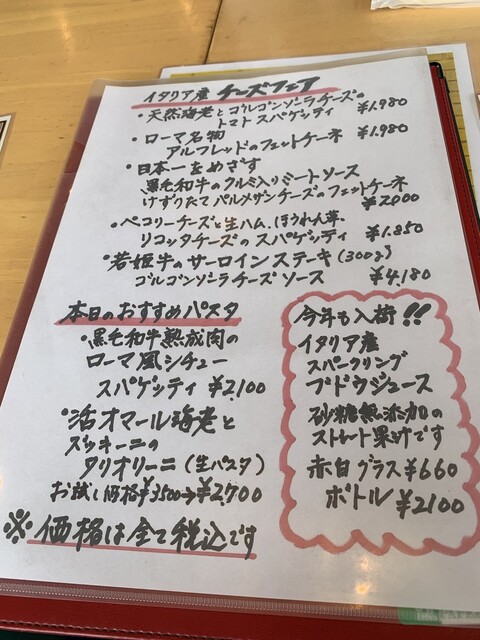 イタリア産 チーズフェア
・天然海老とゴルゴンゾーラチーズの
トマトスパゲッティ ¥1.980
・ローマ名物
アルフレッドのフェットケーネ ¥1.980
・日本一をめざす
黒毛和牛のクルミ入りミートソース
けずりたてパルメザンチーズのフェットケーネ
¥2000
・ペコリーチーズと生ハム、ほうれん草、
リコッタチーズのスパゲッティ ¥1.850
・若姫牛のサーロインステーキ(300g)
ゴルゴンゾーラチーズソース ¥4.180
本日のおすすめパスタ
・黒毛和牛熟成肉の
ローマ風シチュー
スパゲッティ ¥2,100
・活オマール海老と
ズッキーニの
タリオリーニ(生パスタ)
お試し価格¥3500→¥2,700
※価格は全て税込です
今年も入荷!!
イタリア産
スパークリング
ブドウジュース
砂糖無添加の
ストレート果汁です
赤白グラス¥660
ボトル ¥2100